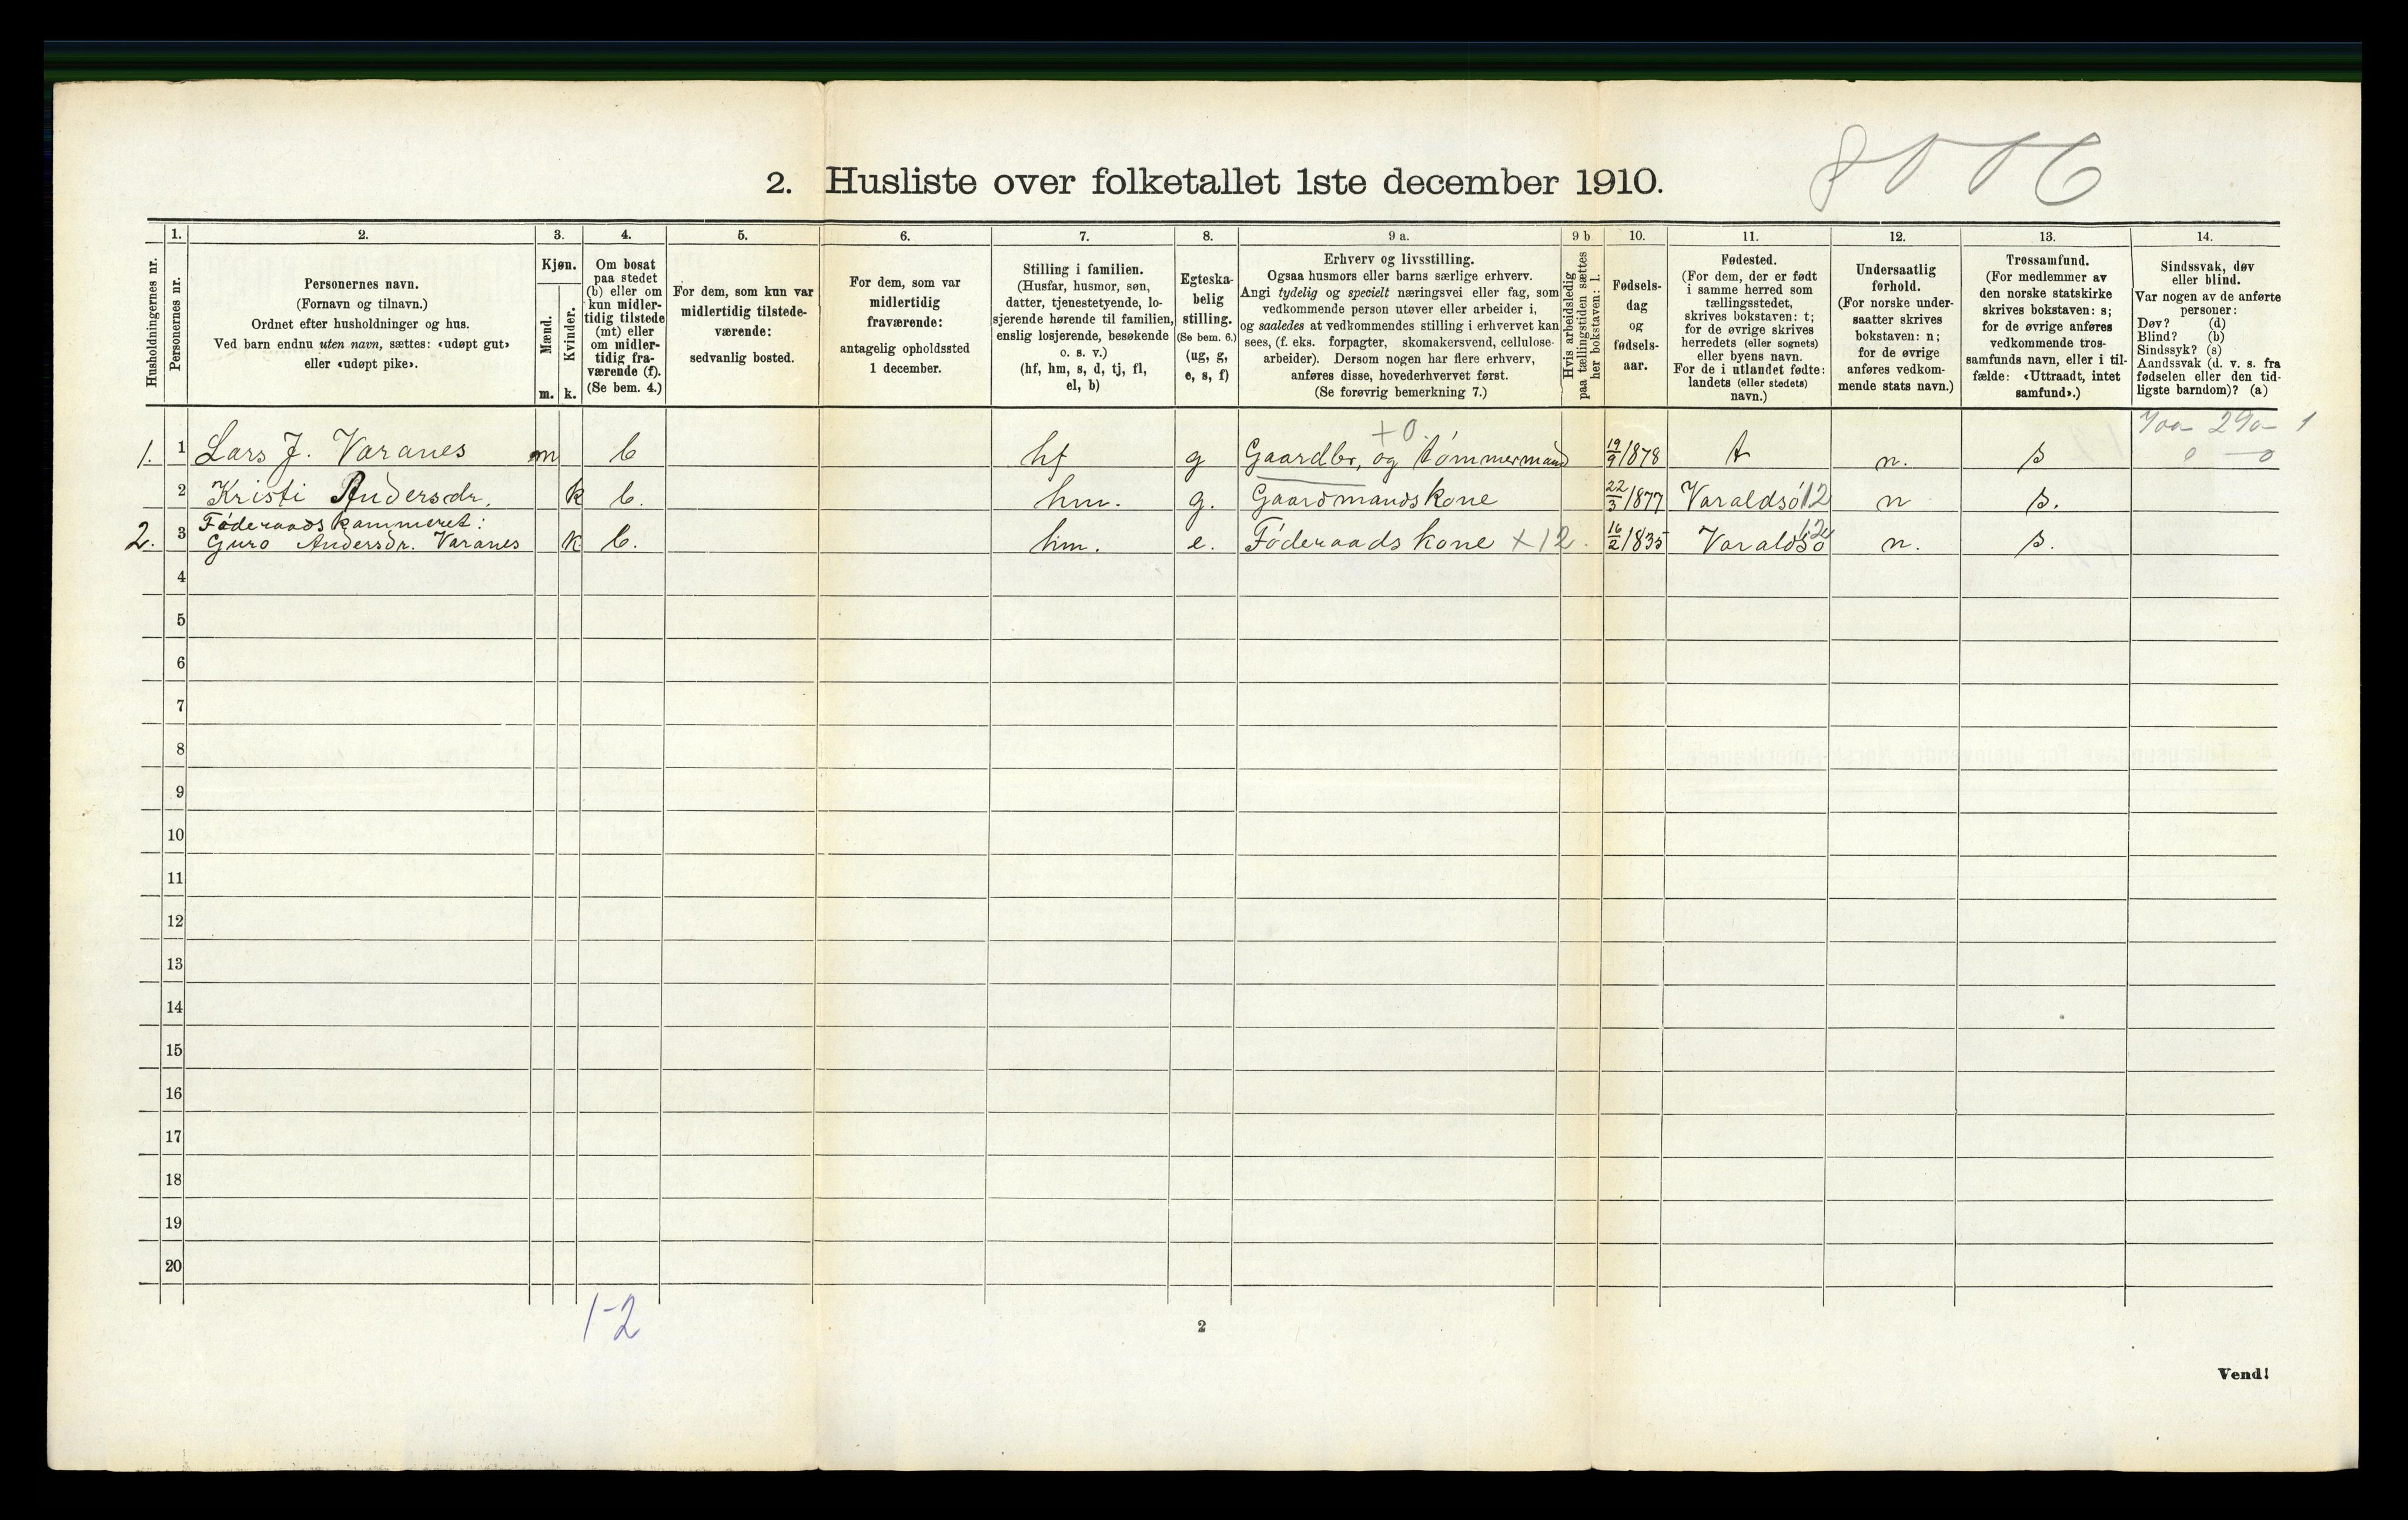 2. Husliste over folketallet 1ste december 1910.
1. 2. 3. 4. 5. 6. 7. 8. 9 a. 9 b 10. 11. 12. 13. 14.
Husholdningernes nr.
Personernes nr.
Personernes navn.
(Fornavn og tilnavn.)
Ordnet efter husholdninger og hus.
Ved barn endnu uten navn, sættes: «udøpt gut»
eller «udøpt pike».
Kjøn.
Mænd.
Kvinder.
m. k.
Om bosat
paa stedet
(b) eller om
kun midler-
tidig tilstede
(mt) eller
om midler-
tidig fra-
værende (f).
(Se bem. 4.)
For dem, som kun var
midlertidig tilstede-
værende:
sedvanlig bosted.
For dem, som var
midlertidig
fraværende:
antagelig opholdssted
1 december.
Stilling i familien.
(Husfar, husmor, søn,
datter, tjenestetyende, lo-
sjerende hørende til familien,
enslig losjerende, besøkende
o. s. v.)
(hf, hm, s, d, tj, fl,
el, b)
Egteska-
belig
stilling.
(Se bem. 6.)
(ug, g,
e, s, f)
Erhverv og livsstilling.
Ogsaa husmors eller barns særlige erhverv.
Angi tydelig og specielt næringsvei eller fag, som
vedkommende person utøver eller arbeider i,
og saaledes at vedkommendes stilling i erhvervet kan
sees, (f. eks. forpagter, skomakersvend, cellulose-
arbeider). Dersom nogen har flere erhverv,
anføres disse, hovederhvervet først.
(Se forøvrig bemerkning 7.)
Hvis arbeidsledig
paa tællingstiden sættes
her bokstaven: l.
Fødsels-
dag
og
fødsels-
aar.
Fødested.
(For dem, der er født
i samme herred som
tællingsstedet,
skrives bokstaven: t;
for de øvrige skrives
herredets (eller sognets)
eller byens navn.
For de i utlandet fødte:
landets (eller stedets)
navn.)
Undersaatlig
forhold.
(For norske under-
saatter skrives
bokstaven: n;
for de øvrige
anføres vedkom-
mende stats navn.)
Trossamfund.
(For medlemmer av
den norske statskirke
skrives bokstaven: s;
for de øvrige anføres
vedkommende tros-
samfunds navn, eller i til-
fælde: «Uttraadt, intet
samfund».)
Sindssvak, døv
eller blind.
Var nogen av de anførte
personer:
Døv? (d)
Blind? (b)
Sindssyk? (s)
Aandssvak (d. v. s. fra
fødselen eller den tid-
ligste barndom)? (a)
+ 0.
1. 1 Lars J. Varanes m b hf g Gaardbr, og tømmermand 19/9 1878 t n. s
2 Kristi Andersdr. k b. hm. g. Gaardmandskone 22/3 1877 Varaldsö 12 n s.
Føderaadskammeret:
2. 3 Guro Andersdr. Varanes k b. hm. e. Føderaadskone x12. 16/2 1835 Varaldsö 12 n. s.
4
5
6
7
8
9
10
11
12
13
14
15
16
17
18
19
20
1-2
2
Vend!